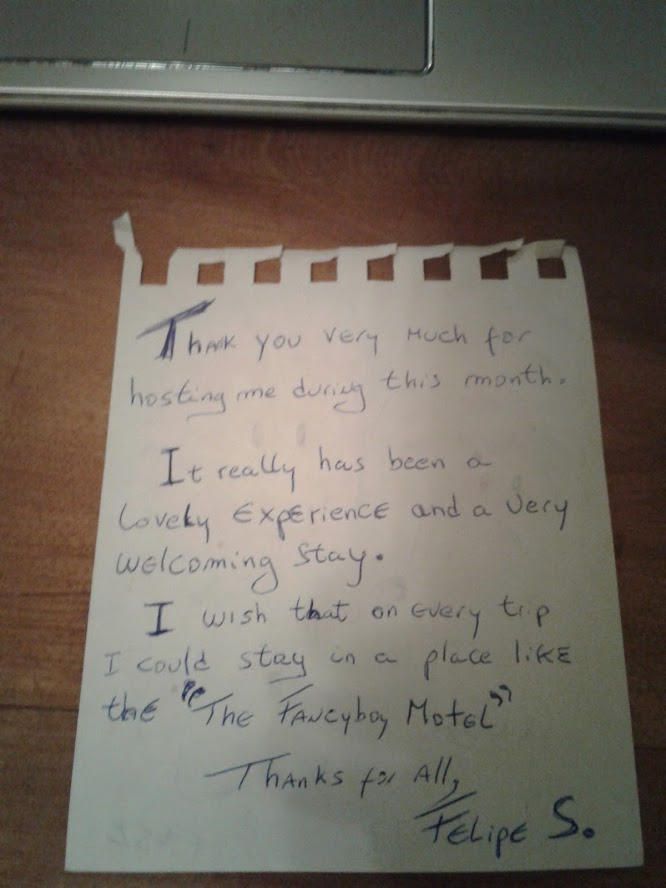 Thank you very much for
hosting me during this month.
It really has been a
lovely experience and a very
welcoming stay.
I wish that on every trip
I could stay in a place like
the "The Fancyboy Motel"
Thanks for all,
Felipe S.